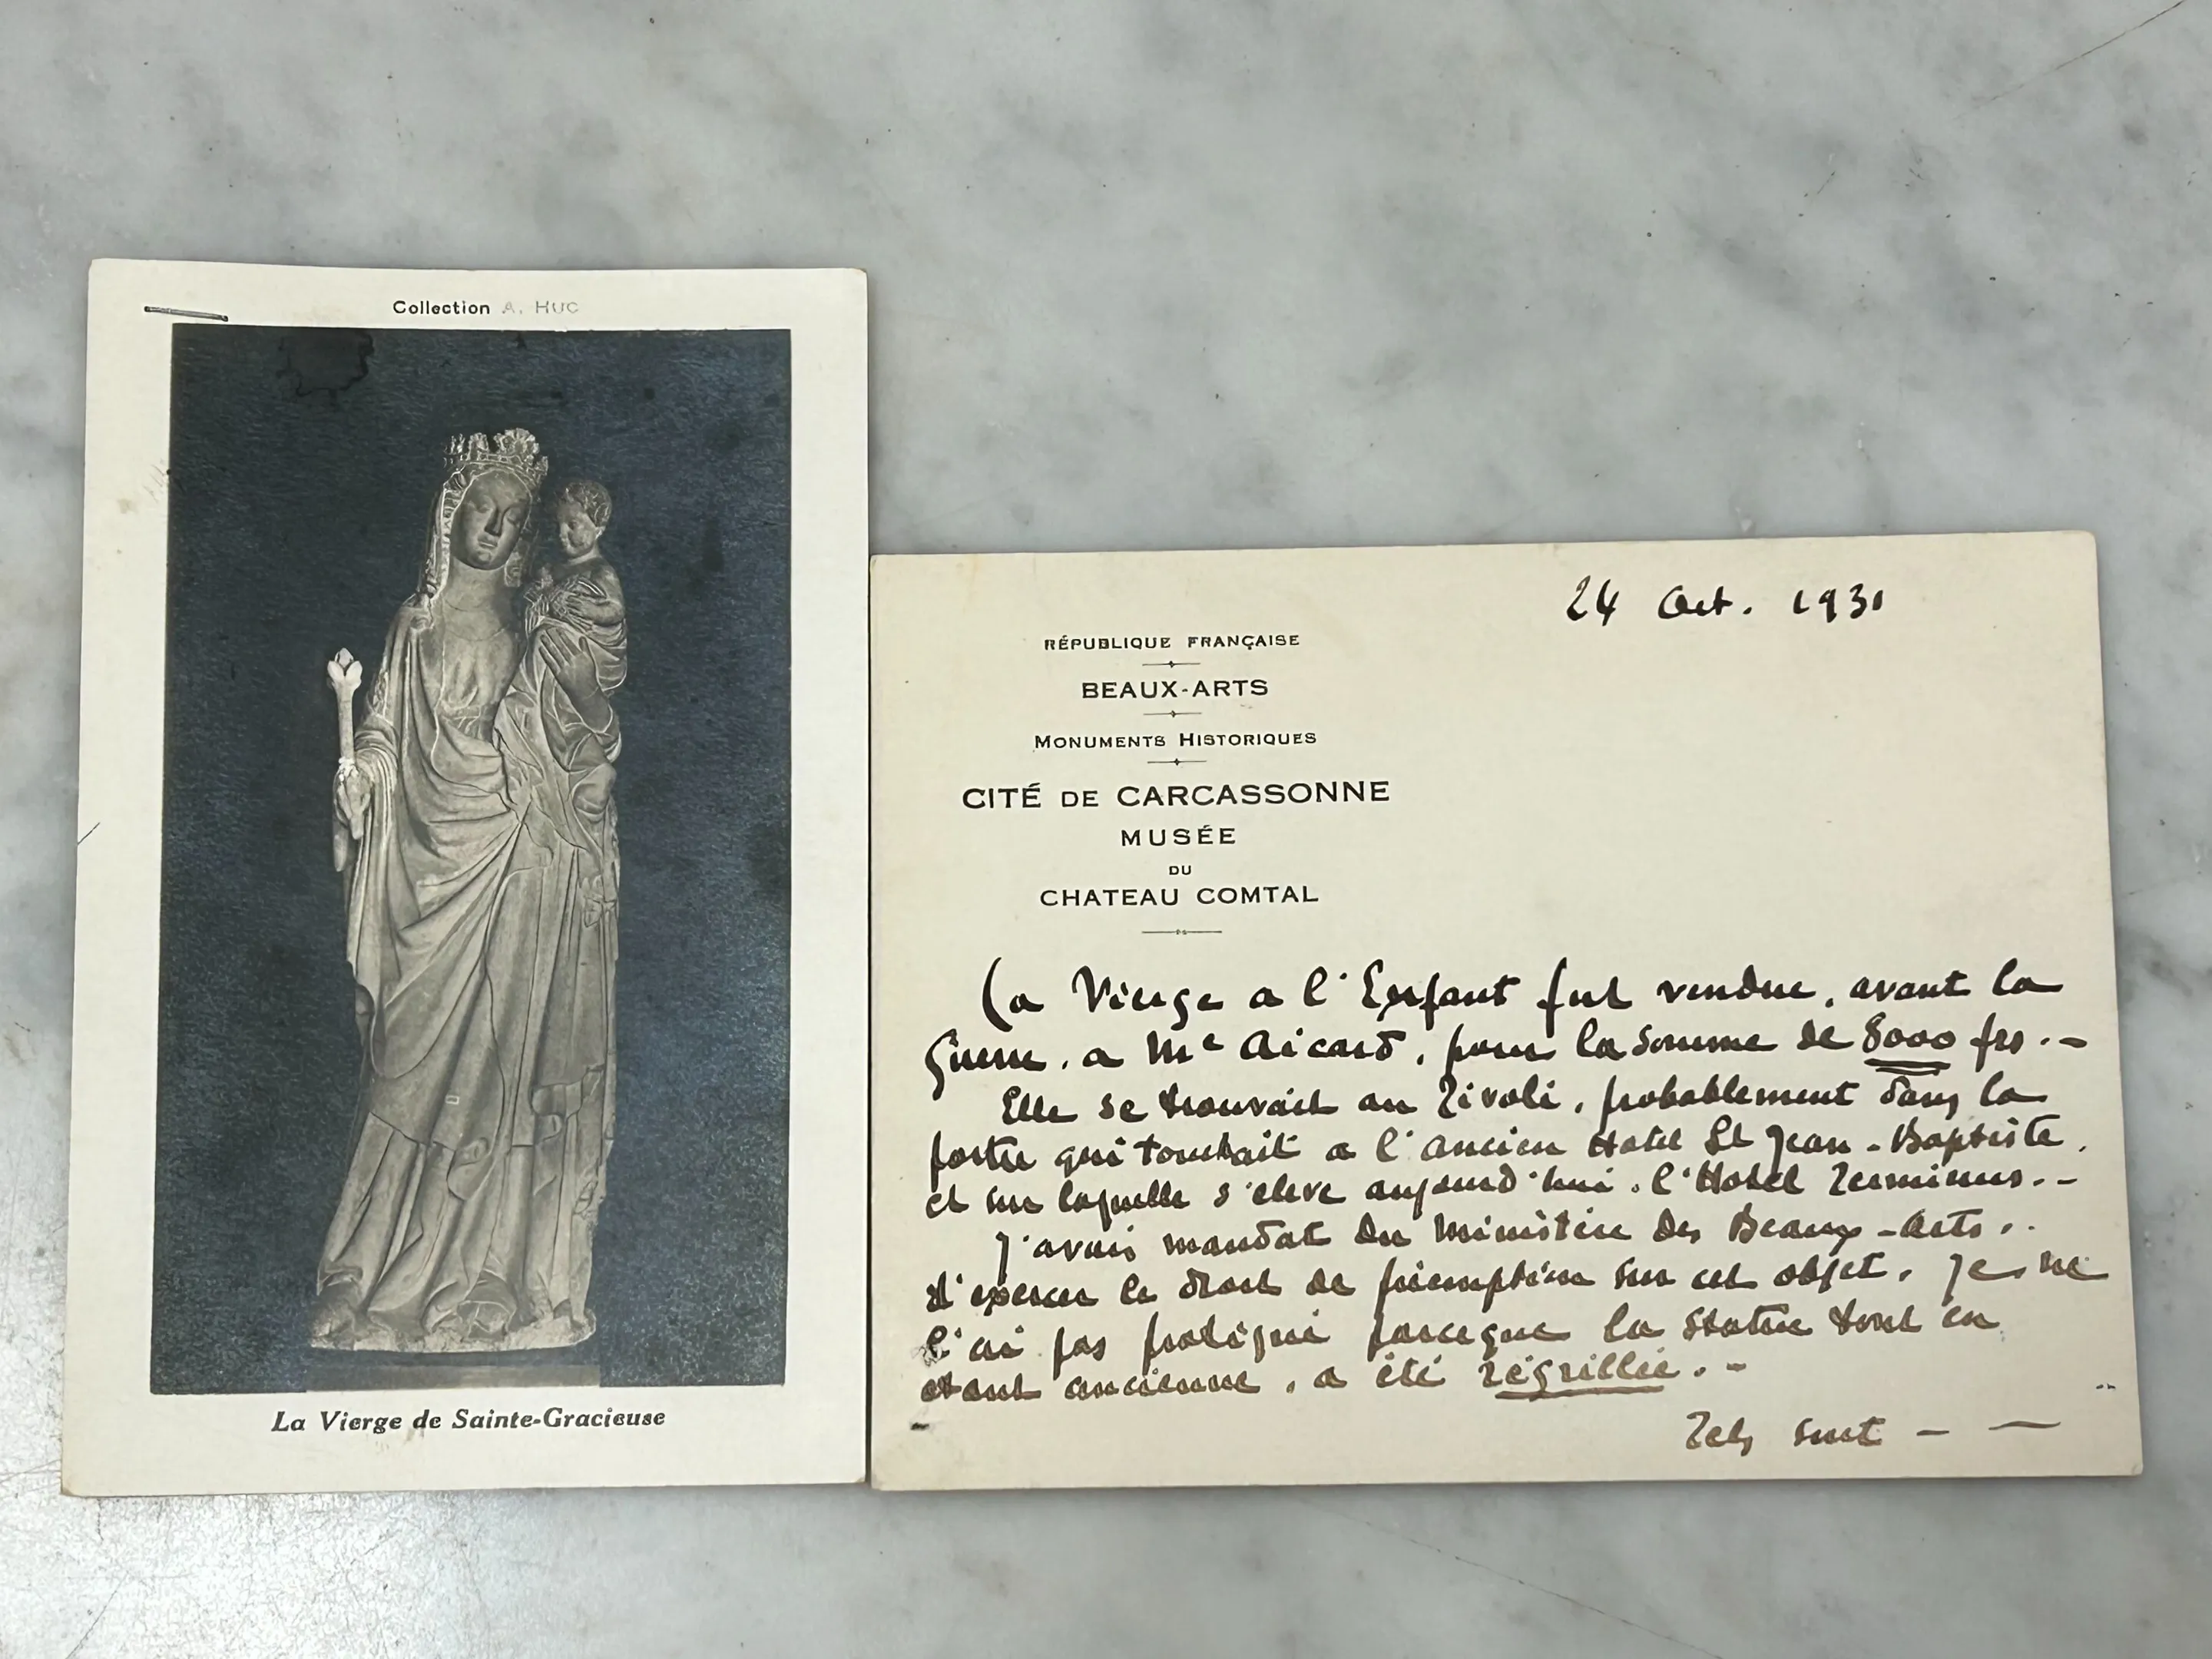 Collection A. HUC
La Vierge de Sainte-Gracieuse
24 Oct. 1931
RÉPUBLIQUE FRANÇAISE
BEAUX-ARTS
MONUMENTS HISTORIQUES
CITÉ DE CARCASSONNE
MUSÉE
DU
CHATEAU COMTAL
La Vierge a l'Enfant fut vendue, avant la
Guerre, a Me Aicard, pour la somme de 8000 frs.-
Elle se trouvait au Tivoli, probablement dans la
partie qui touchait a l'ancien Hotel St Jean-Baptiste,
et sur laquelle s'eleve aujourd'hui, l'Hotel Terminus.-
J'avais mandat du Ministère des Beaux-Arts..
d'exercer le droit de préemption sur cet objet. Je ne
l'ai pas pratiqué parceque la statue tout en
etant ancienne, a été régrillée.-
Tels sont - —